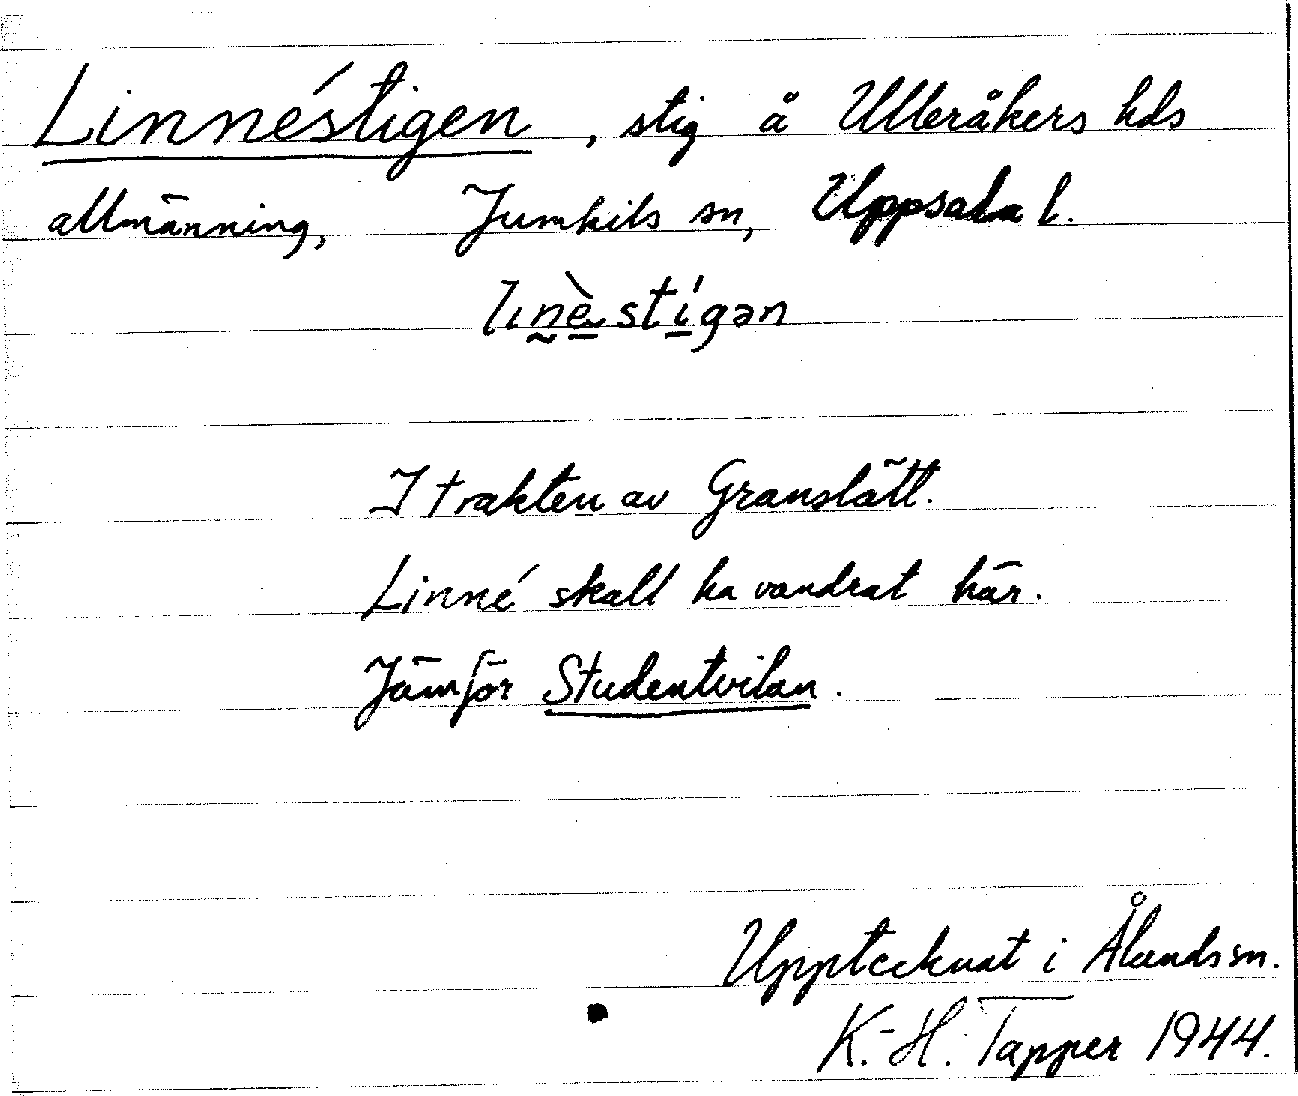 Linnéstigen, stig å Ulleråkers hds
allmänning, Jumkils sn, Uppsala l.
lınèstígən
I trakten av Granslätt.
Linné skall ha vandrat här.
Jämför Studentvilan.
Upptecknat i Ålands sn.
K.-H. Tapper 1944.